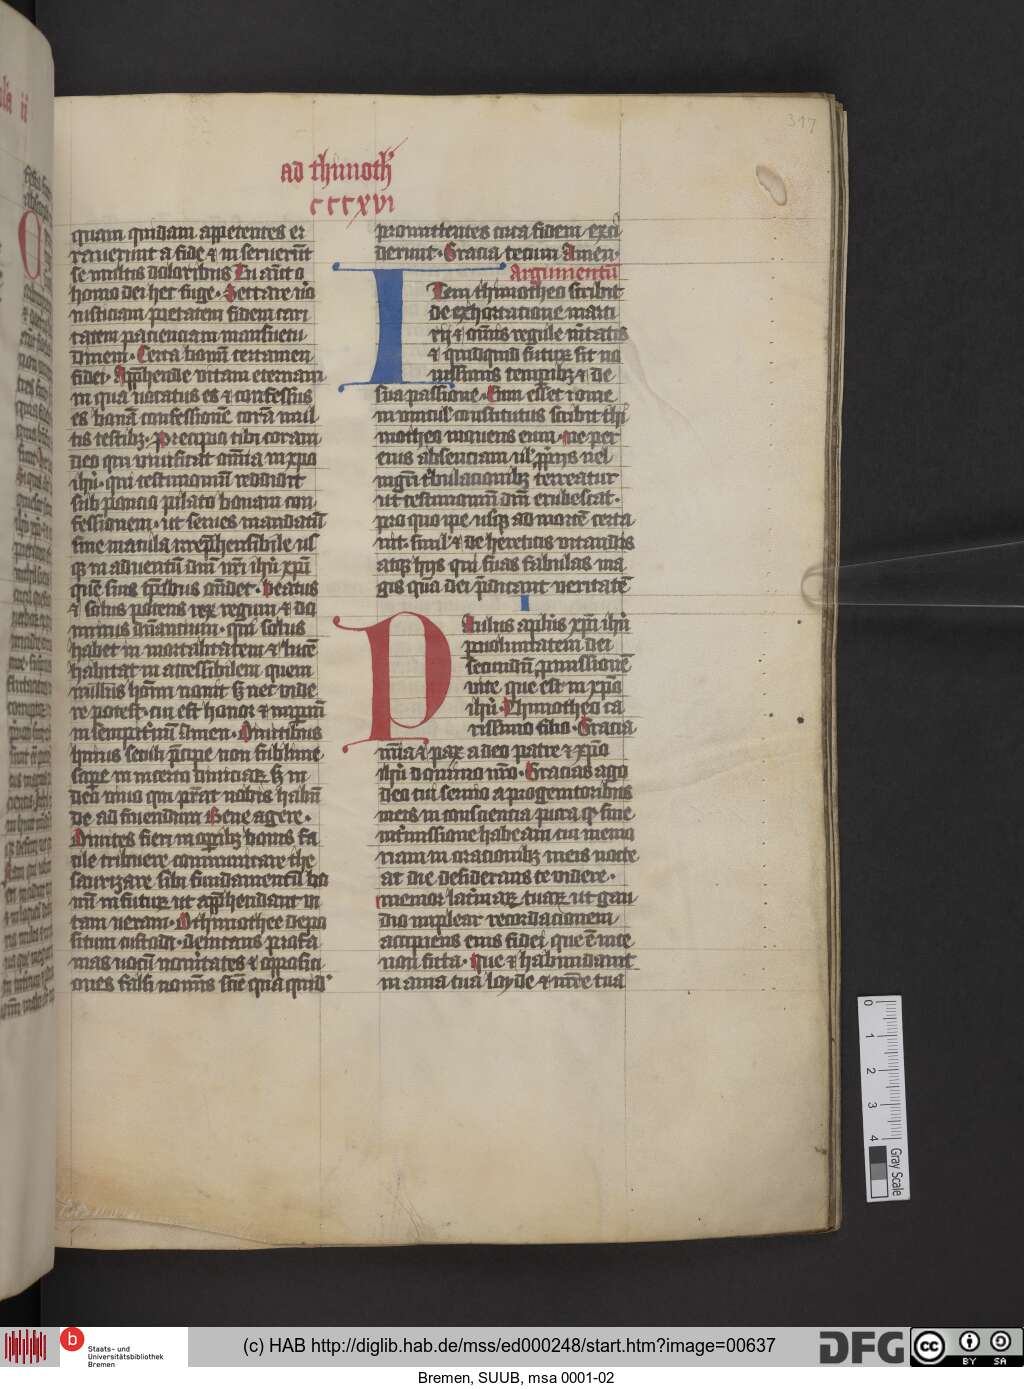 317
ad thimoth'
cccxvi
quam quidam appetentes er
rauerunt a fide ⁊ in seruerūt
se multis doloribus Tu aūt o
homo dei hec fuge· Sectare uo
iusticiam pietatem fidem cari
tatem pacienciam mansuetu
dinem· Certa bonū certamen
fidei· Apphende vitam eternam
in qua uocatus es ⁊ confessus
es bonā confessionē corā mul
tis testibꝫ· Precipio tibi coram
deo qui viuificat om̄ia in xp̄o
ih̄u· qui testimoniū reddidit
sub poncio pilato bonam con
fessionem· ut serues mandatū
sine macula irrep̄hensibile us
qꝫ in aduentū dn̄i nr̄i ih̄u xp̄i
quē suis tp̄ribus on̄det· beatus
⁊ solus potens rex regum ⁊ do
minus dn̄antium· qui solus
habet in mortalitatem ⁊ lucē
habitat in accessibilem quem
nullus hoīm nouit sꝫ nec vide
re potest· cui est honor ⁊ imperiū
in sempit'nū Amen· Diuitibus
huius sc̄li p̄cipe non sublime
sape in incerto diuiciaꝝ sꝫ in
deo viuo qui p̄stat nobis habū
de ad fruendum Bene agere·
Diuites fieri in oꝑibꝫ bonis fa
cile tribuere communicare the
saurizare sibi fundamentū bo
nū in futuꝝ ut apphendant vi
tam ueram· O thimothee depo
situm custodi· deuitans profa
nas uocū nouitates ⁊ opposici
ones falsi noīnis sciē quā quid'
promittentes circa fidem exci
derunt· Gracia tecum Amen·
argumentū
Item thimotheo scribit
de exhortatione marti
rij ⁊ om̄is regule uītatis
⁊ quidquid futuꝝ sit no
uissimis temporibꝫ ⁊ de
sua passione· Cum eēt rome
in uincul' constitutus scribit thi
motheo monens eum· ne per
eius absenciam ul' p̄prijs uel
in gm̄ t'bulacionibꝫ terreatur
ut testimoniū dn̄i erubescat·
pro quo ip̄e usqꝫ ad mortē certa
uit· simil' ⁊ de hereticis vitandis
atqꝫ hijs qui suas fabulas ma
gis quā dei p̄dicant veritatē
I
Paulus apl̄us xp̄i ih̄u
p uoluntatem dei
secundū promissionē
vite que est in xp̄o
ih̄u· Thimotheo ca
rissimo filio· Gracia
mīa ⁊ pax a deo patre ⁊ xp̄o
ih̄u domino nr̄o· Gracias ago
deo cui seruio a progenitoribus
meis in consciencia pura qꝫ sine
int'missione habeam tui memo
riam in oracionibꝫ meis nocte
ac die desiderans te videre·
memor lacrimaꝝ tuaꝝ ut gau
dio implear recordacionem
accipiens eius fidei que ē in te
non ficta· Que ⁊ habundauit
in auia tua loyde ⁊ mr̄e tua
0
1
2
3
4
Gray Scale
b
Staats- und
Universitätsbibliothek
Bremen
(c) HAB http://diglib.hab.de/mss/ed000248/start.htm?image=00637
DFG
cc BY SA
Bremen, SUUB, msa 0001-02